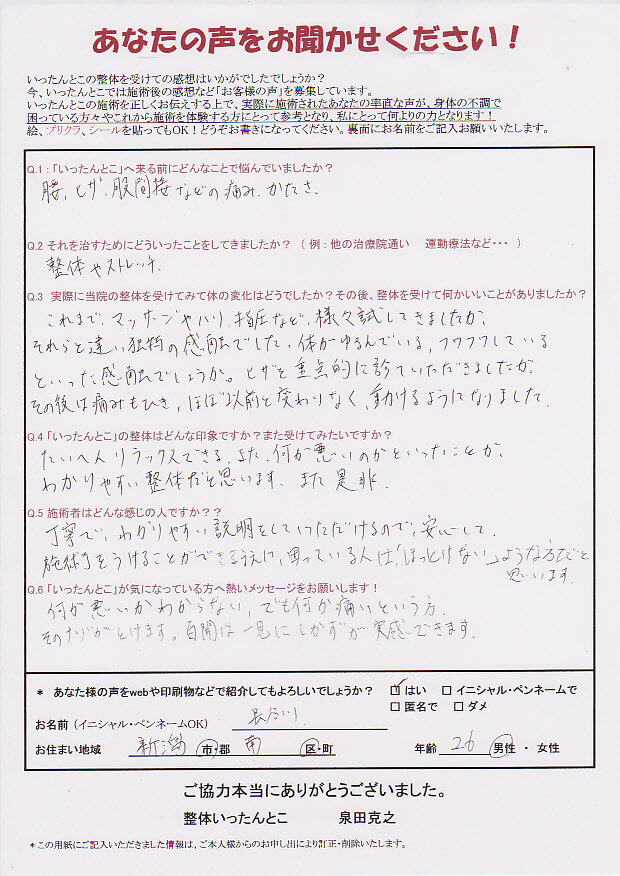 あなたの声をお聞かせください！
いったんとこの整体を受けての感想はいかがでしたでしょうか？
今、いったんとこでは施術後の感想など「お客様の声」を募集しています。
いったんとこの施術を正しくお伝えする上で、実際に施術されたあなたの率直な声が、身体の不調で
困っている方々やこれから施術を体験する方にとって参考となり、私にとって何よりの力となります！
絵、プリクラ、シールを貼ってもOK！どうぞお書きになってください。裏面にお名前をご記入お願いいたします。
Q.1：「いったんとこ」へ来る前にどんなことで悩んでいましたか？
腰、ヒザ、股間接などの痛み、かたさ、
Q.2 それを治すためにどういったことをしてきましたか？（例：他の治療院通い　運動療法など・・・）
整体やストレッチ、
Q.3 実際に当院の整体を受けてみて体の変化はどうでしたか？その後、整体を受けて何かいいことがありましたか？
これまで、マッサージやハリ、指圧など、様々試してきましたが、
それらと違い独特の感触でした。体がゆるんでいる、フワフワしている
といった感触でしょうか。ヒザを重点的に診ていただきましたが、
その後は痛みもひき、ほぼ以前と変わりなく、動けるようになりました。
Q.4「いったんとこ」の整体はどんな印象ですか？また受けてみたいですか？
たいへんリラックスできる、また、何が悪いのかといったことが、
わかりやすい整体だと思います。また是非。
Q.5 施術者はどんな感じの人ですか？？
丁寧で、わかりやすい説明をしていただけるので、安心して、
施術をうけることができるうえに、困っている人は、「ほっとけない」ような方だと
思います。
Q.6「いったんとこ」が気になっている方へ熱いメッセージをお願いします！
何が悪いかわからない、でも何か痛いという方、
そのナゾがとけます。百聞は一見にしかずが実感できます。
＊ あなた様の声をwebや印刷物などで紹介してもよろしいでしょうか？ ☑はい □イニシャル・ペンネームで
□匿名で □ダメ
お名前（イニシャル・ペンネームOK） 長谷川
お住まい地域 新潟 市・郡 南 区・町 年齢 26 男性・女性
ご協力本当にありがとうございました。
整体いったんとこ 泉田克之
＊この用紙にご記入いただきました情報は、ご本人様からのお申し出により訂正・削除いたします。